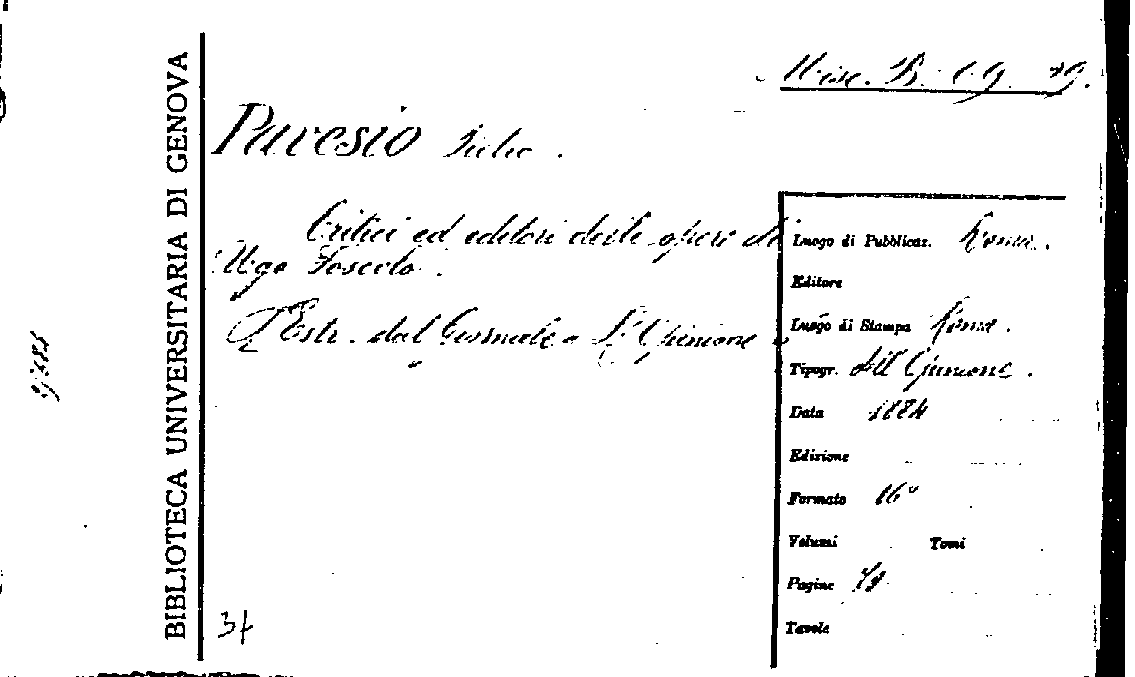 BIBLIOTECA UNIVERSITARIA DI GENOVA
Misc. B.
Pavesio
Critici ed editori delle opere di
Ugo Foscolo.
Estr. dal Giornale L'Opinione
Luogo di Pubblicaz. Roma.
Editore
Luogo di Stampa Roma.
Tipogr. dell'Opinione.
Data 1884
Edizione
Formato 16°
Volumi Tomi
Pagine
Tavole